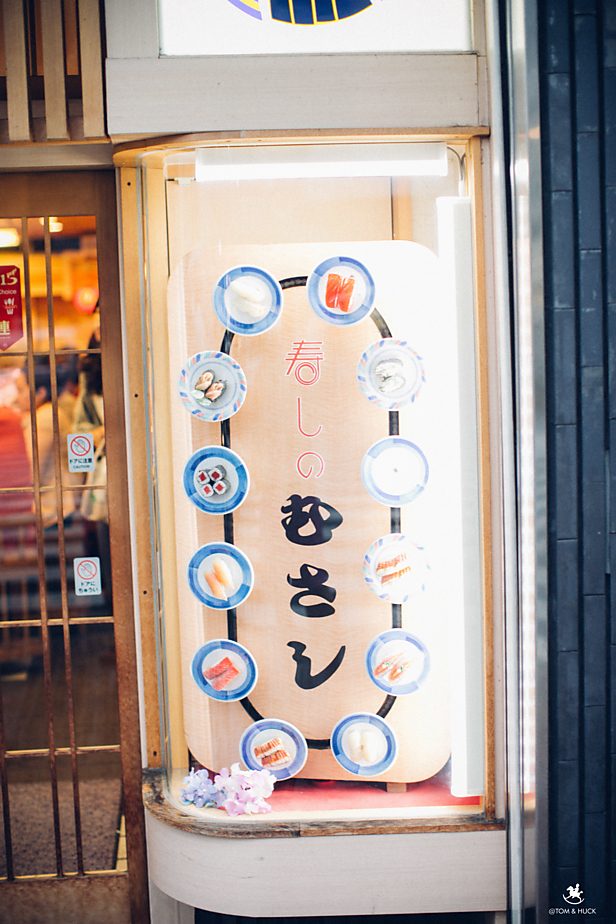 15
Choice
連
寿しのむさし
ドアに注意
CAUTION
ドアに
ちゅうい
@TOM & HUCK